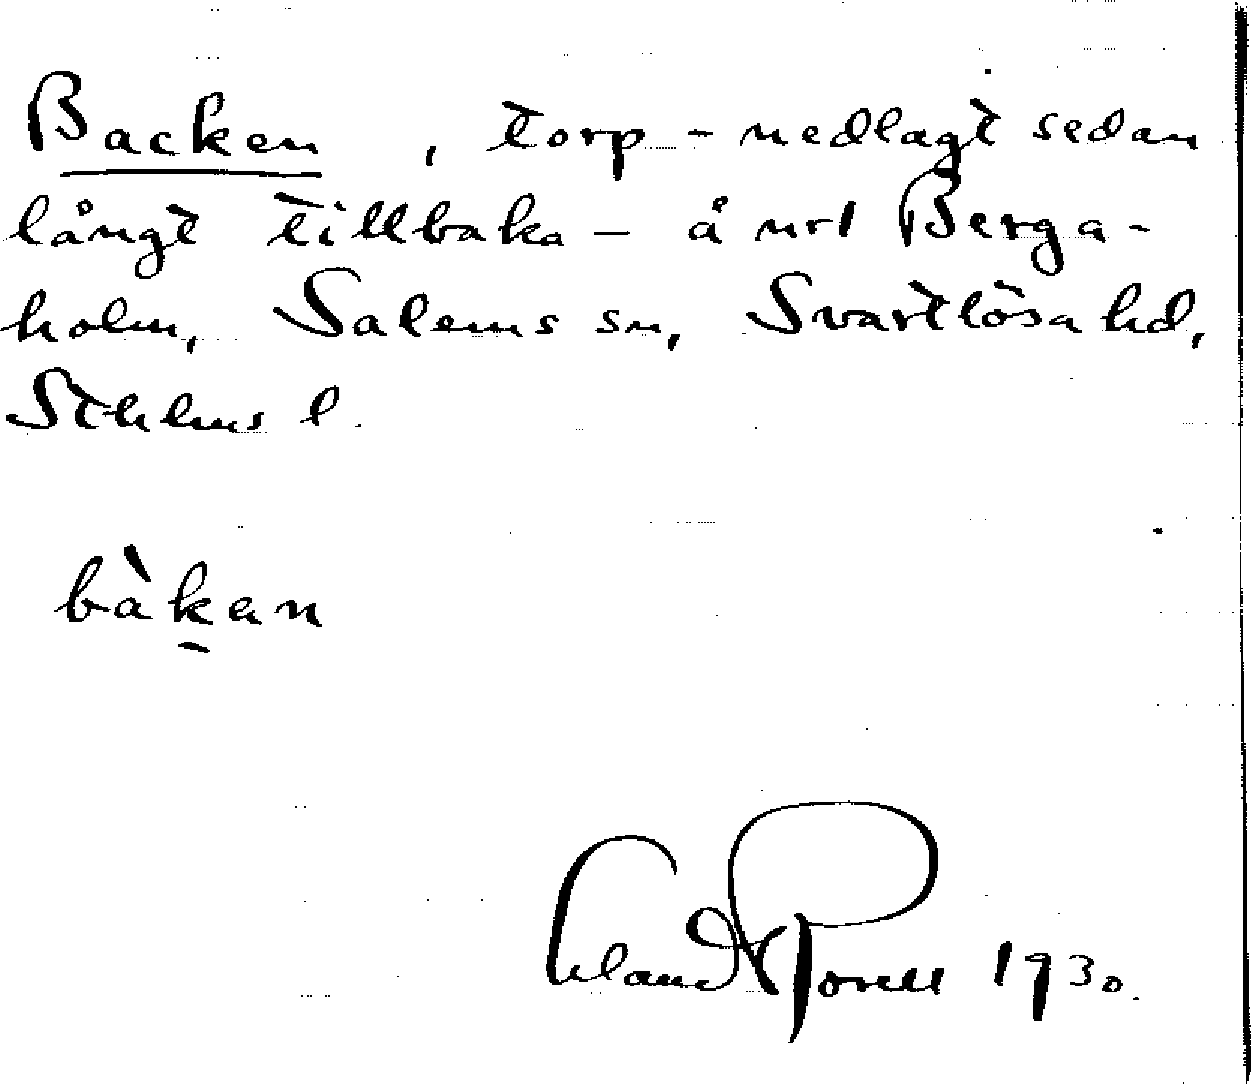 Backen, torp - nedlagt sedan
långt tillbaka - å url Berga-
holm, Salems sn, Svartlösa hd,
Sthlms l.
bàk̠an
Erland Rosell 1930.